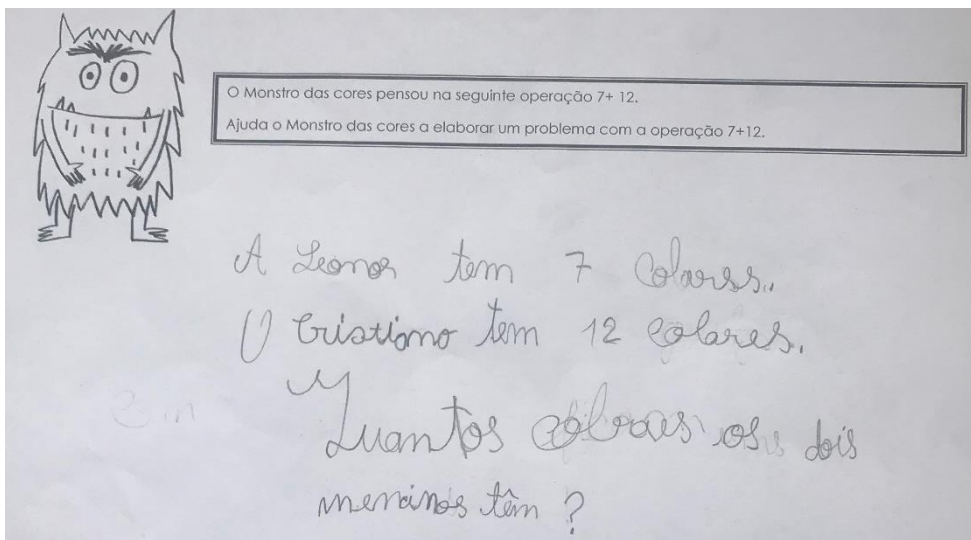 O Monstro das cores pensou na seguinte operação 7+ 12.
Ajuda o Monstro das cores a elaborar um problema com a operação 7+12.
A Leonor tem 7 Colarss..
O Cristiano tem 12 colares.
Quantos colraes os dois
meninos têm ?